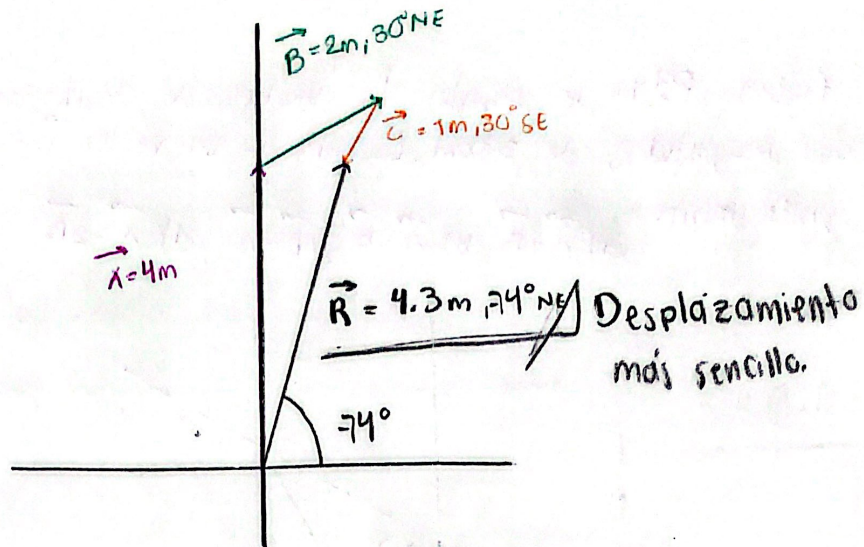 B = 2m, 30° NE
C = 1m, 30° SE
A = 4m
R = 4.3 m, 74° NE
Desplazamiento
más sencillo.
74°